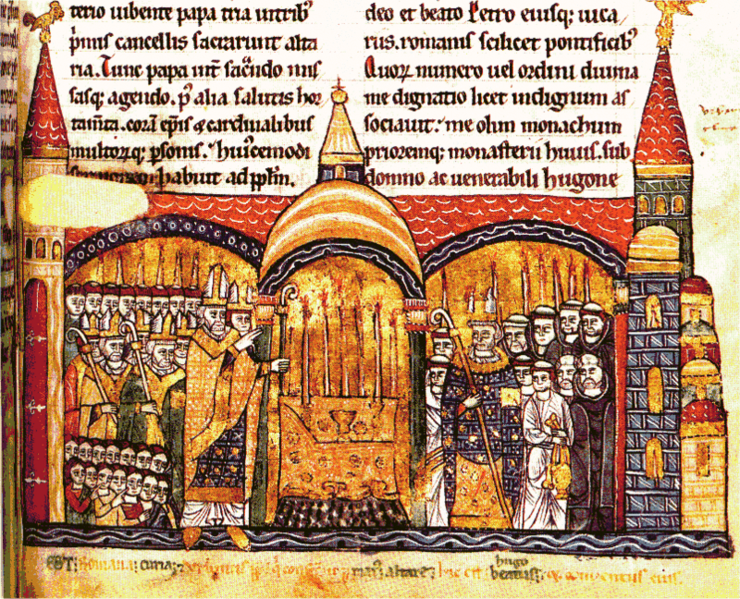 terio iubente papa tria in trib᷒
p̄mis cancellis sacrariuit alta
ria. Tunc papa int̄ sac̄ndo mis
sasq; agendo. p̄ alia salutis hor
tam̄ta. corā ep̄is & cardinalibus
multorq; p̄sonis. huiıcemodi
habuit ad pp̄lm.
deo et beato Petro eiusq; uica
riis. romanis scilicet pontificib᷒
Quoꝝ numero uel ordini diuina
me dignatio licet indignum as
sociauit. me olim monachum
prioremq; monasterii huius. sub
domno ac uenerabili hugone
romana; curia;
altare; hic est hugo